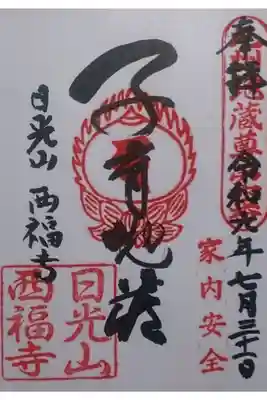 奉拝
令和元年七月三十一日
家内安全
子育地蔵
日光山 西福寺
日光山
西福寺